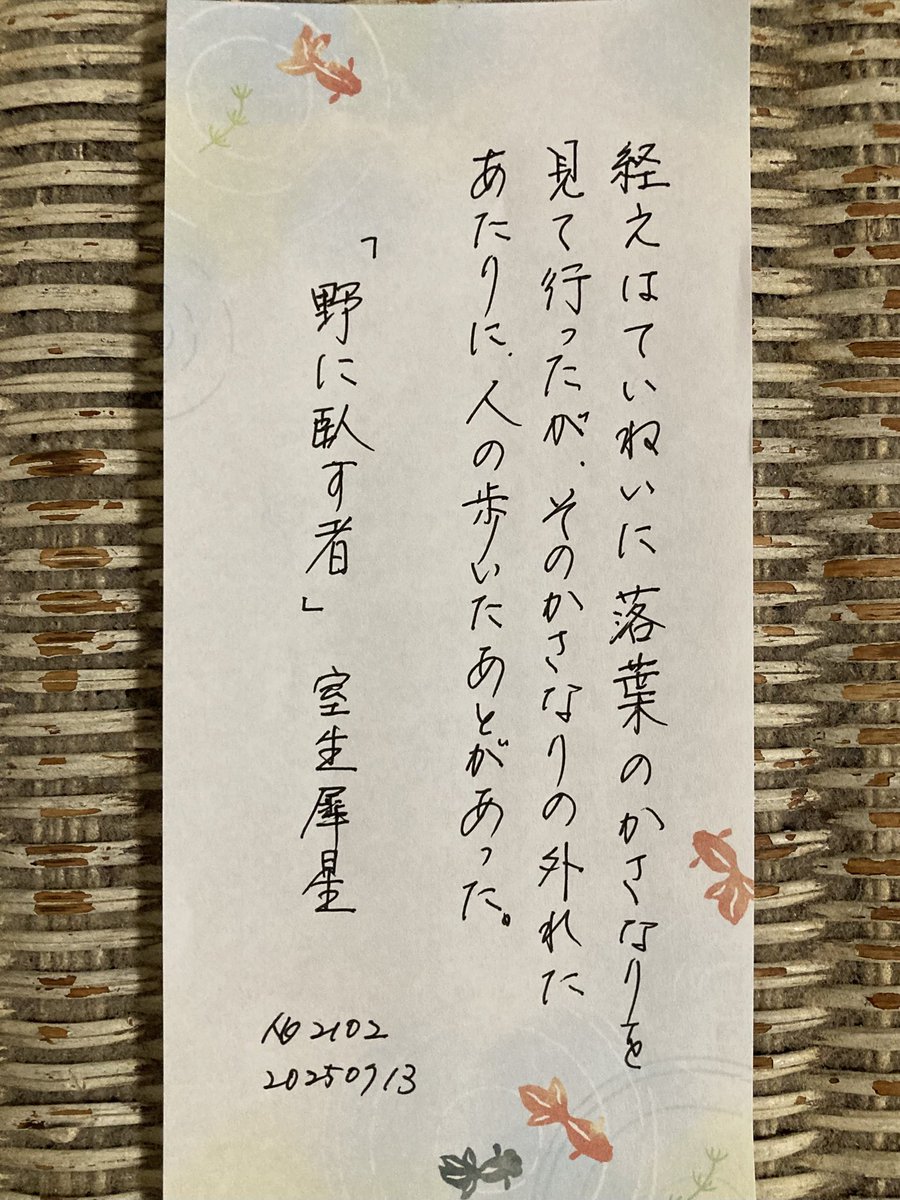 経えはていねいに落葉のかさなりを
見て行ったが、そのかさなりの外れた
あたりに、人の歩いたあとがあった。
「野に臥す者」 室生犀星
2102
20250913